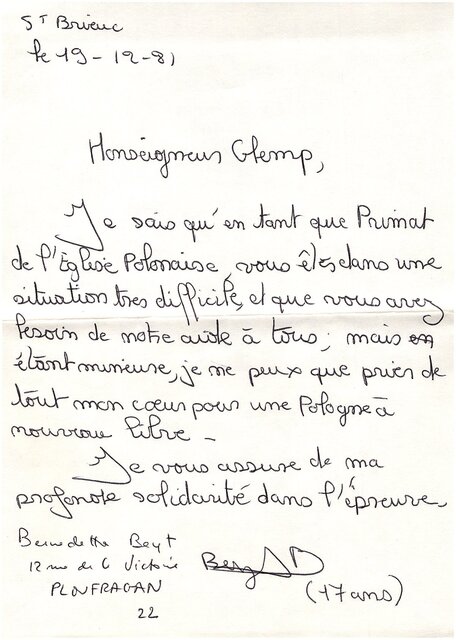 St Brieuc
le 19-12-81
Monseigneur Glemp,
Je sais qu'en tant que Primat
de l'Église Polonaise, vous êtes dans une
situation très difficile, et que vous avez
besoin de notre aide à tous; mais en
étant mineure, je ne peux que prier de
tout mon cœur pour une Pologne à
nouveau libre -
Je vous assure de ma
profonde solidarité dans l'épreuve.
Bernadette Beyt
12 rue de la Victoire
PLOUFRAGAN
22
(17 ans)